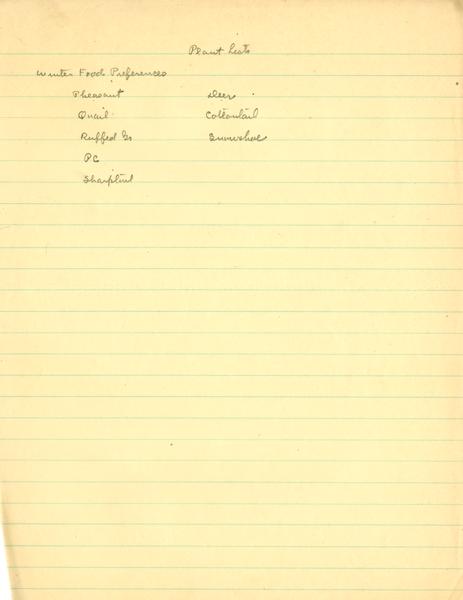 Plant Lists
Winter Food Preferences
Pheasant Deer
Quail Cottontail
Ruffed Gr Snowshoe
PC
Sharptail